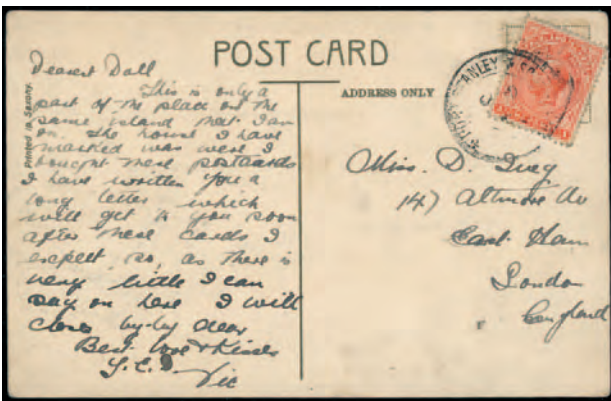 POST CARD
Printed in Saxony.
Dearest Doll
This is only a
part of the place on the
same island that I am
on. The house I have
marked was were I
bought these postcards
I have written you a
long letter which
will get to you soon
after these cards I
expect so, as there is
very little I can
say on here I will
close by-by dear
Best love & Kisses
Y.C.D. Vic
ADDRESS ONLY
Miss. D.
147 Altmore Av
East Ham
London
England
STANLEY